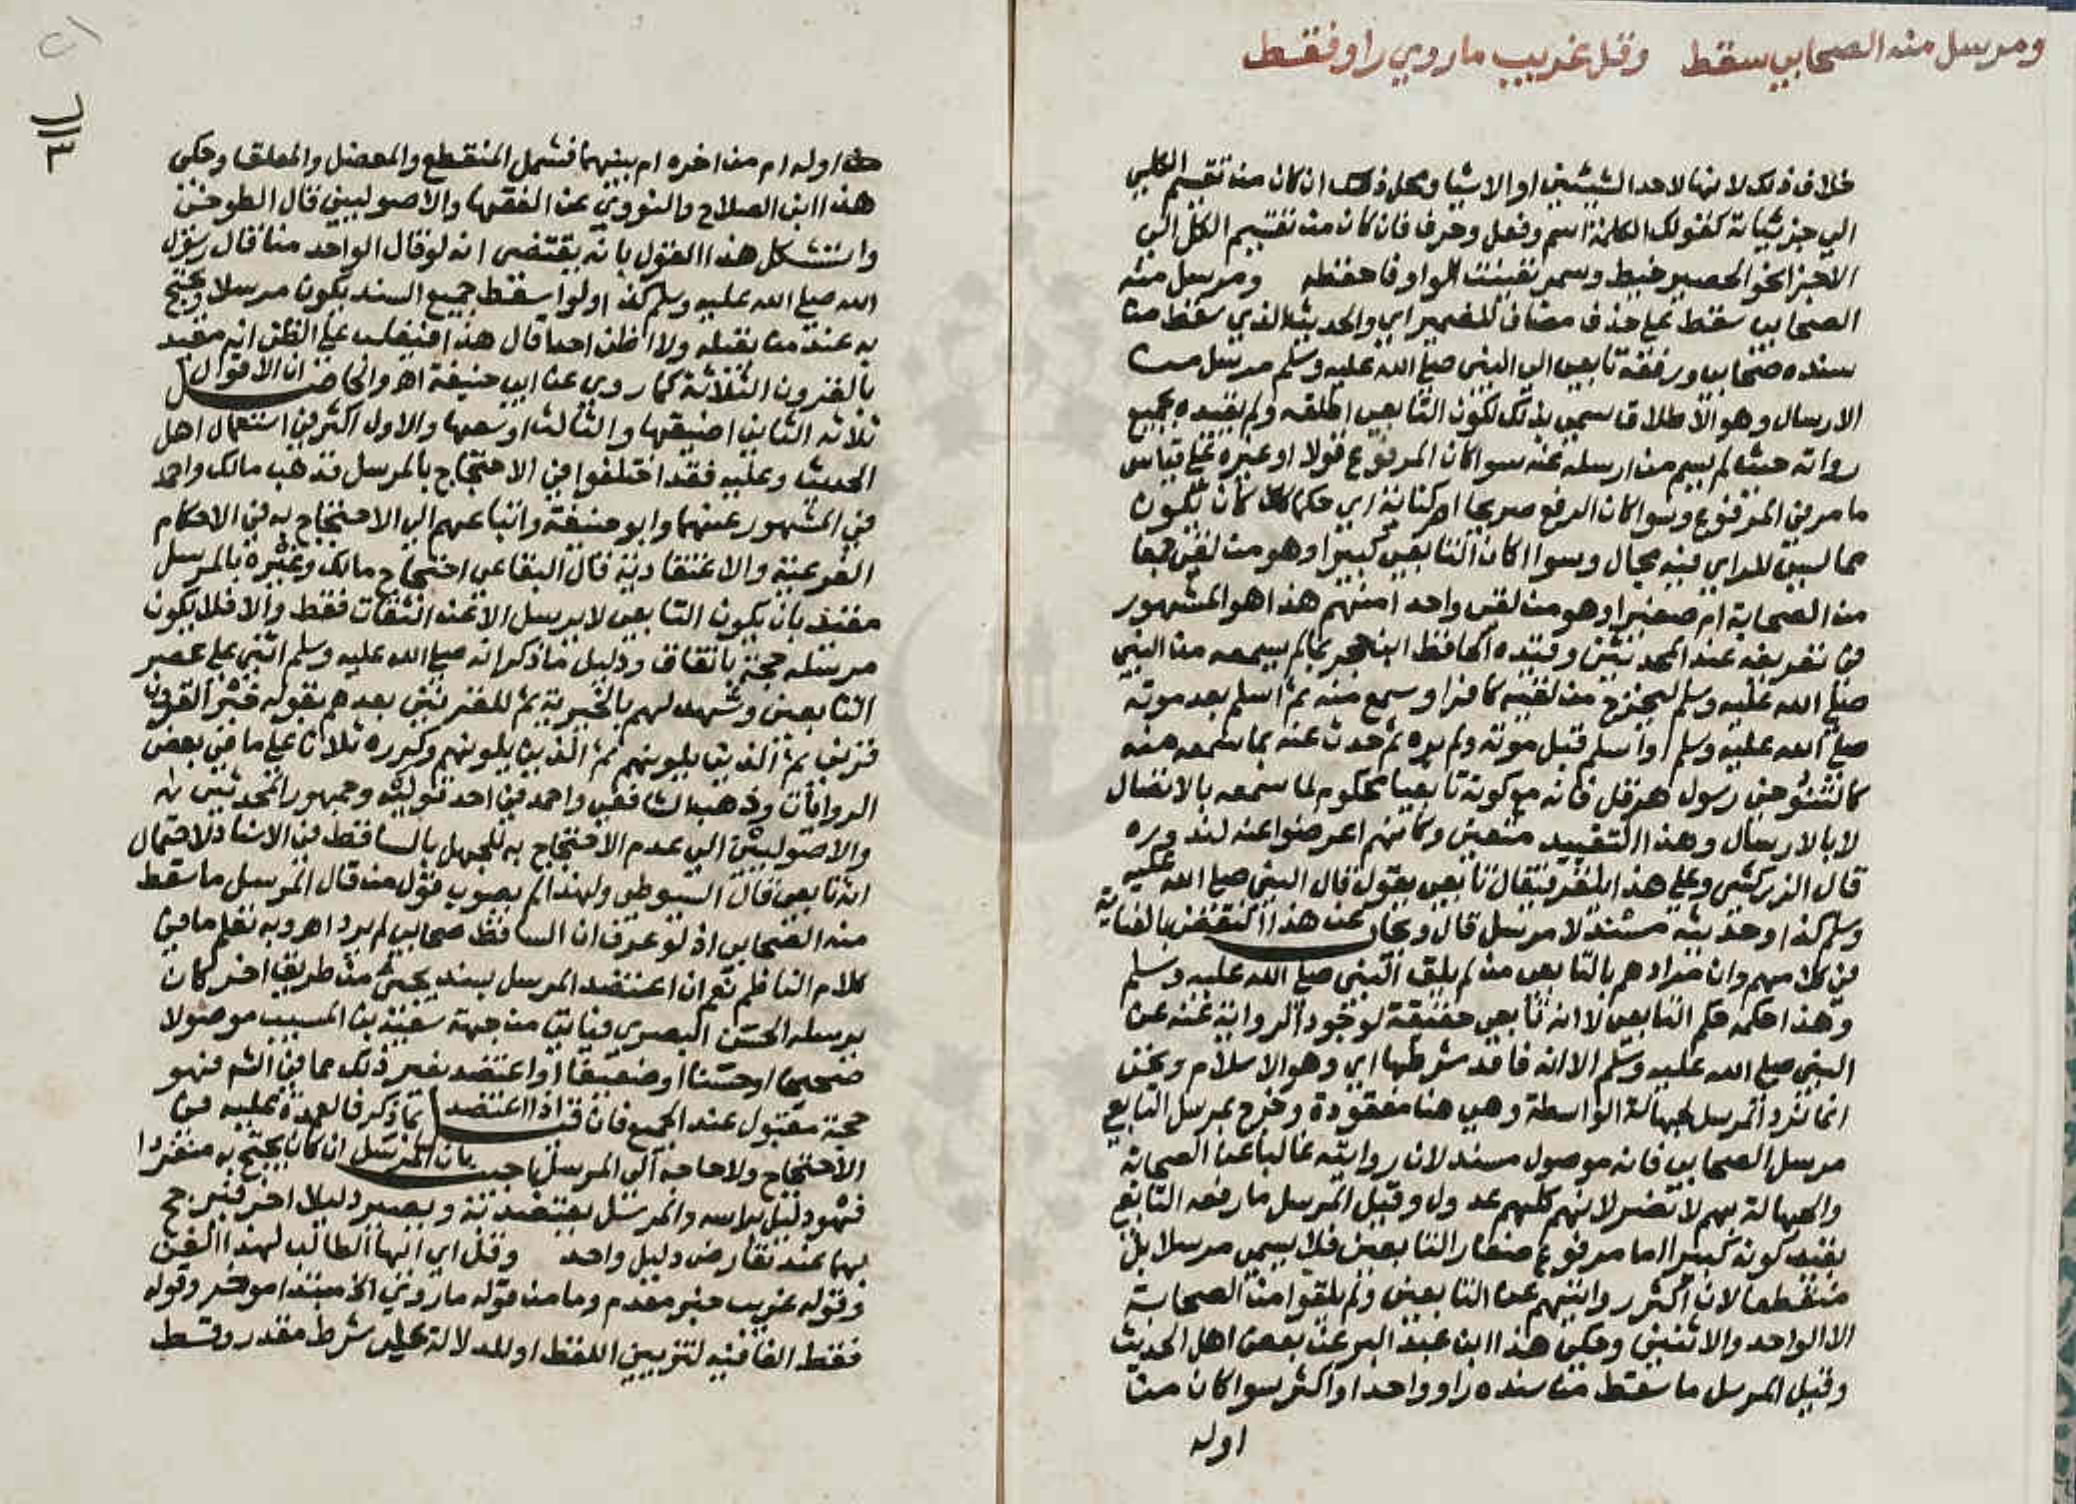 ومرسل منه الصحابي سقط وقل غريب ما روي راو فقط
خلاف ذلك لانها لاحد الشيئين او الاشيا ومحل ذلك ان كان من تقسيم الكلي
الي جزئياته كقولك الكلمة اسم وفعل وحرف فان كان من تقسيم الكل الي
الاجزا نحو الحصير خيط وسمر تعينت الواو فاحفظه ومرسل منه
الصحابي سقط علي حذف مضاف للضمير اي والحديث الذي سقط من
سنده صحابي ورفعه تابعي الي النبي صلي الله عليه وسلم مرسل من
الارسال وهو الاطلاق سمي بذلك لكون التابعي اطلقه ولم يقيده بجميع
رواته حيث لم يسم من ارسله عنه سوا كان المرفوع قولا او غيره علي قياس
ما مر في المرفوع وسوا كان الرفع صريحا ام كناية اي حكما كان يكون
مما ليس للراي فيه مجال وسوا اكان التابعي كبيرا وهو من لقي جمعا
من الصحابة ام صغيرا وهو من لقي واحدا منهم هذا هو المشهور
في تعريفه عند المحدثين وقيده الحافظ ابن حجر بما لم يسمعه من النبي
صلي الله عليه وسلم ليخرج من لقيه كافرا وسمع منه ثم اسلم بعد موته
صلي الله عليه وسلم او اسلم قبل موته ولم يره ثم حدث عنه بما سمعه منه
كالتنوخي رسول هرقل فانه مع كونه تابعيا محكوم لما سمعه بالاتصال
لا بالارسال وهذا التقييد متعين وكانهم اعرضوا عنه لندوره
قال الزركشي وعلي هذا يلغز فيقال تابعي يقول قال النبي صلي الله عليه
وسلم كذا وحديثه مسند لا مرسل قال ويجاب عن هذا النقض بالعناية
في كلامهم وان مرادهم بالتابعي من لم يلق النبي صلي الله عليه وسلم
وهذا حكمه حكم التابعي لا انه تابعي حقيقة لوجود الرواية عنه عن
النبي صلي الله عليه وسلم الا انه فاقد شرطها اي وهو الاسلام ونحن
انما نرد المرسل لجهالة الواسطة وهي هنا مفقودة وخرج بمرسل التابعي
مرسل الصحابي فانه موصول مسند لان روايته غالبا عن الصحابة
والجهالة بهم لا تضر لانهم كلهم عدول وقيل المرسل ما رفعه التابعي
بقيد كونه كبيرا اما مرفوع صغار التابعين فلا يسمي مرسلا بل
منقطعا لان اكثر روايتهم عن التابعين ولم يلقوا من الصحابة
الا الواحد والاثنين وحكي هذا ابن عبد البر عن بعض اهل الحديث
وقيل المرسل ما سقط من سنده راو واحد او اكثر سوا كان من
اوله
٣
اوله ام من اخره ام بينهما فشمل المنقطع والمعضل والمعلق وحكي
هذا ابن الصلاح والنووي عن الفقها والاصوليين قال الطوخي
واستشكل هذا القول بانه يقتضي انه لو قال الواحد منا قال رسول
الله صلي الله عليه وسلم كذا ولو اسقط جميع السند يكون مرسلا ويحتج
به عند من يقبله ولا اظن احدا قال هذا فيغلب علي الظن انه مقيد
بالقرون الثلاثة كما روي عن ابي حنيفة اهـ والحاصل ان الاقوال
ثلاثه الثاني اضيقها والثالث اوسعها والاول اكثر في استعمال اهل
الحديث وعليه فقد اختلفوا في الاحتجاج بالمرسل فذهب مالك واحمد
في المشهور عنهما وابو حنيفة واتباعهم الي الاحتجاج به في الاحكام
الفرعية والاعتقادية قال البقاعي احتجاج مالك وغيره بالمرسل
مقيد بان يكون التابعي لا يرسل الا عن الثقات فقط والا فلا يكون
مرسله حجة باتفاق ودليل ما ذكر انه صلي الله عليه وسلم اثني علي عصر
التابعين وشهد لهم بالخيرية ثم للقرنين بعدهم بقوله خير القرون
قرني ثم الذين يلونهم ثم الذين يلونهم وكرره ثلاثا علي ما في بعض
الروايات وذهب الشافعي واحمد في احد قوليه وجمهور المحدثين
والاصوليين الي عدم الاحتجاج به للجهل بالساقط في الاسناد لاحتمال
انه تابعي قال السيوطي ولهذا لم يصوب قول من قال المرسل ما سقط
منه الصحابي اذ لو عرف ان الساقط صحابي لم يرد اهـ وبه تعلم ما في
كلام الناظم نعم ان اعتضد المرسل بسند يجئ من طريق اخر كان
يرسله الحسن البصري فياتي من جهة سعيد بن المسيب موصولا
صحيحا او حسنا او ضعيفا او اعتضد بغير ذلك مما في الشم فهو
حجة مقبول عند الجميع فان قيل اذا اعتضد بما ذكر فالعمدة عليه في
الاحتجاج ولا حاجة الي المرسل اجيب بان المرسل ان كان يحتج به منفردا
فهو دليل براسه والمرسل يعتضد به ويصير دليلا اخر فيرجح
بهما عند تعارض دليل واحد وقل اي ايها الطالب لهذا الفن
وقوله غريب خبر مقدم وما من قوله ما روي الخ مبتدا موخر وقوله
فقط الفا فيه لتزيين اللفظ او للدلالة علي شرط مقدر وقط